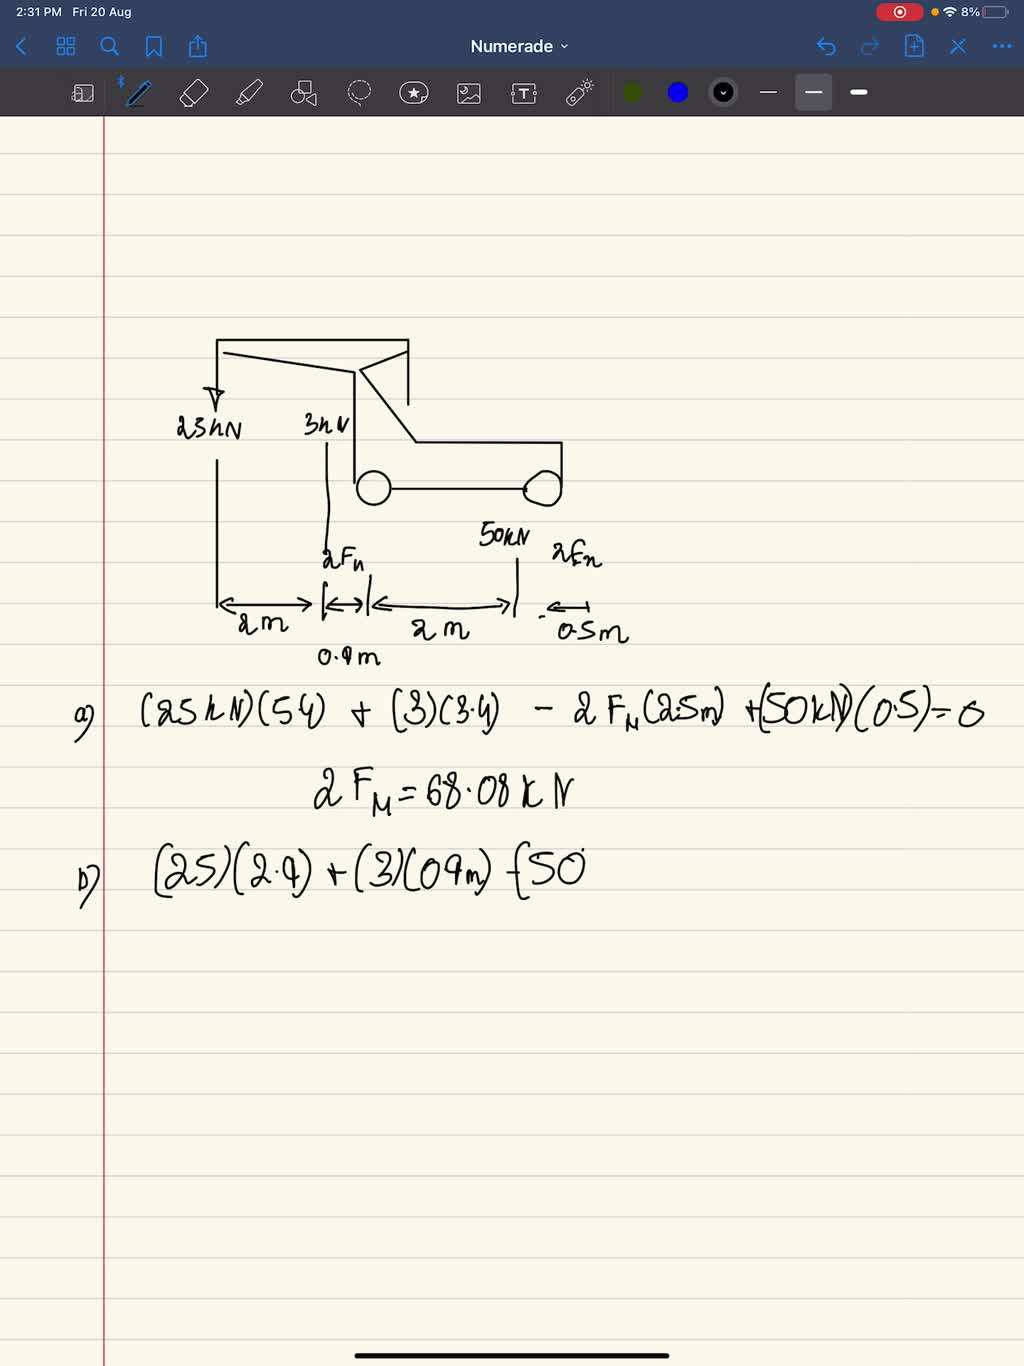 2:31 PM Fri 20 Aug 8%
Numerade
T
25kN 3kN
50kN
2Fn 2Fn
2m 2m 0.5m
0.9m
a) (25kN)(5.4) + (3)(3.4) - 2F_M(2.5m) + (50kN)(0.5) = 0
2F_M = 68.08kN
b) (25)(2.9) + (3)(09m) - (50